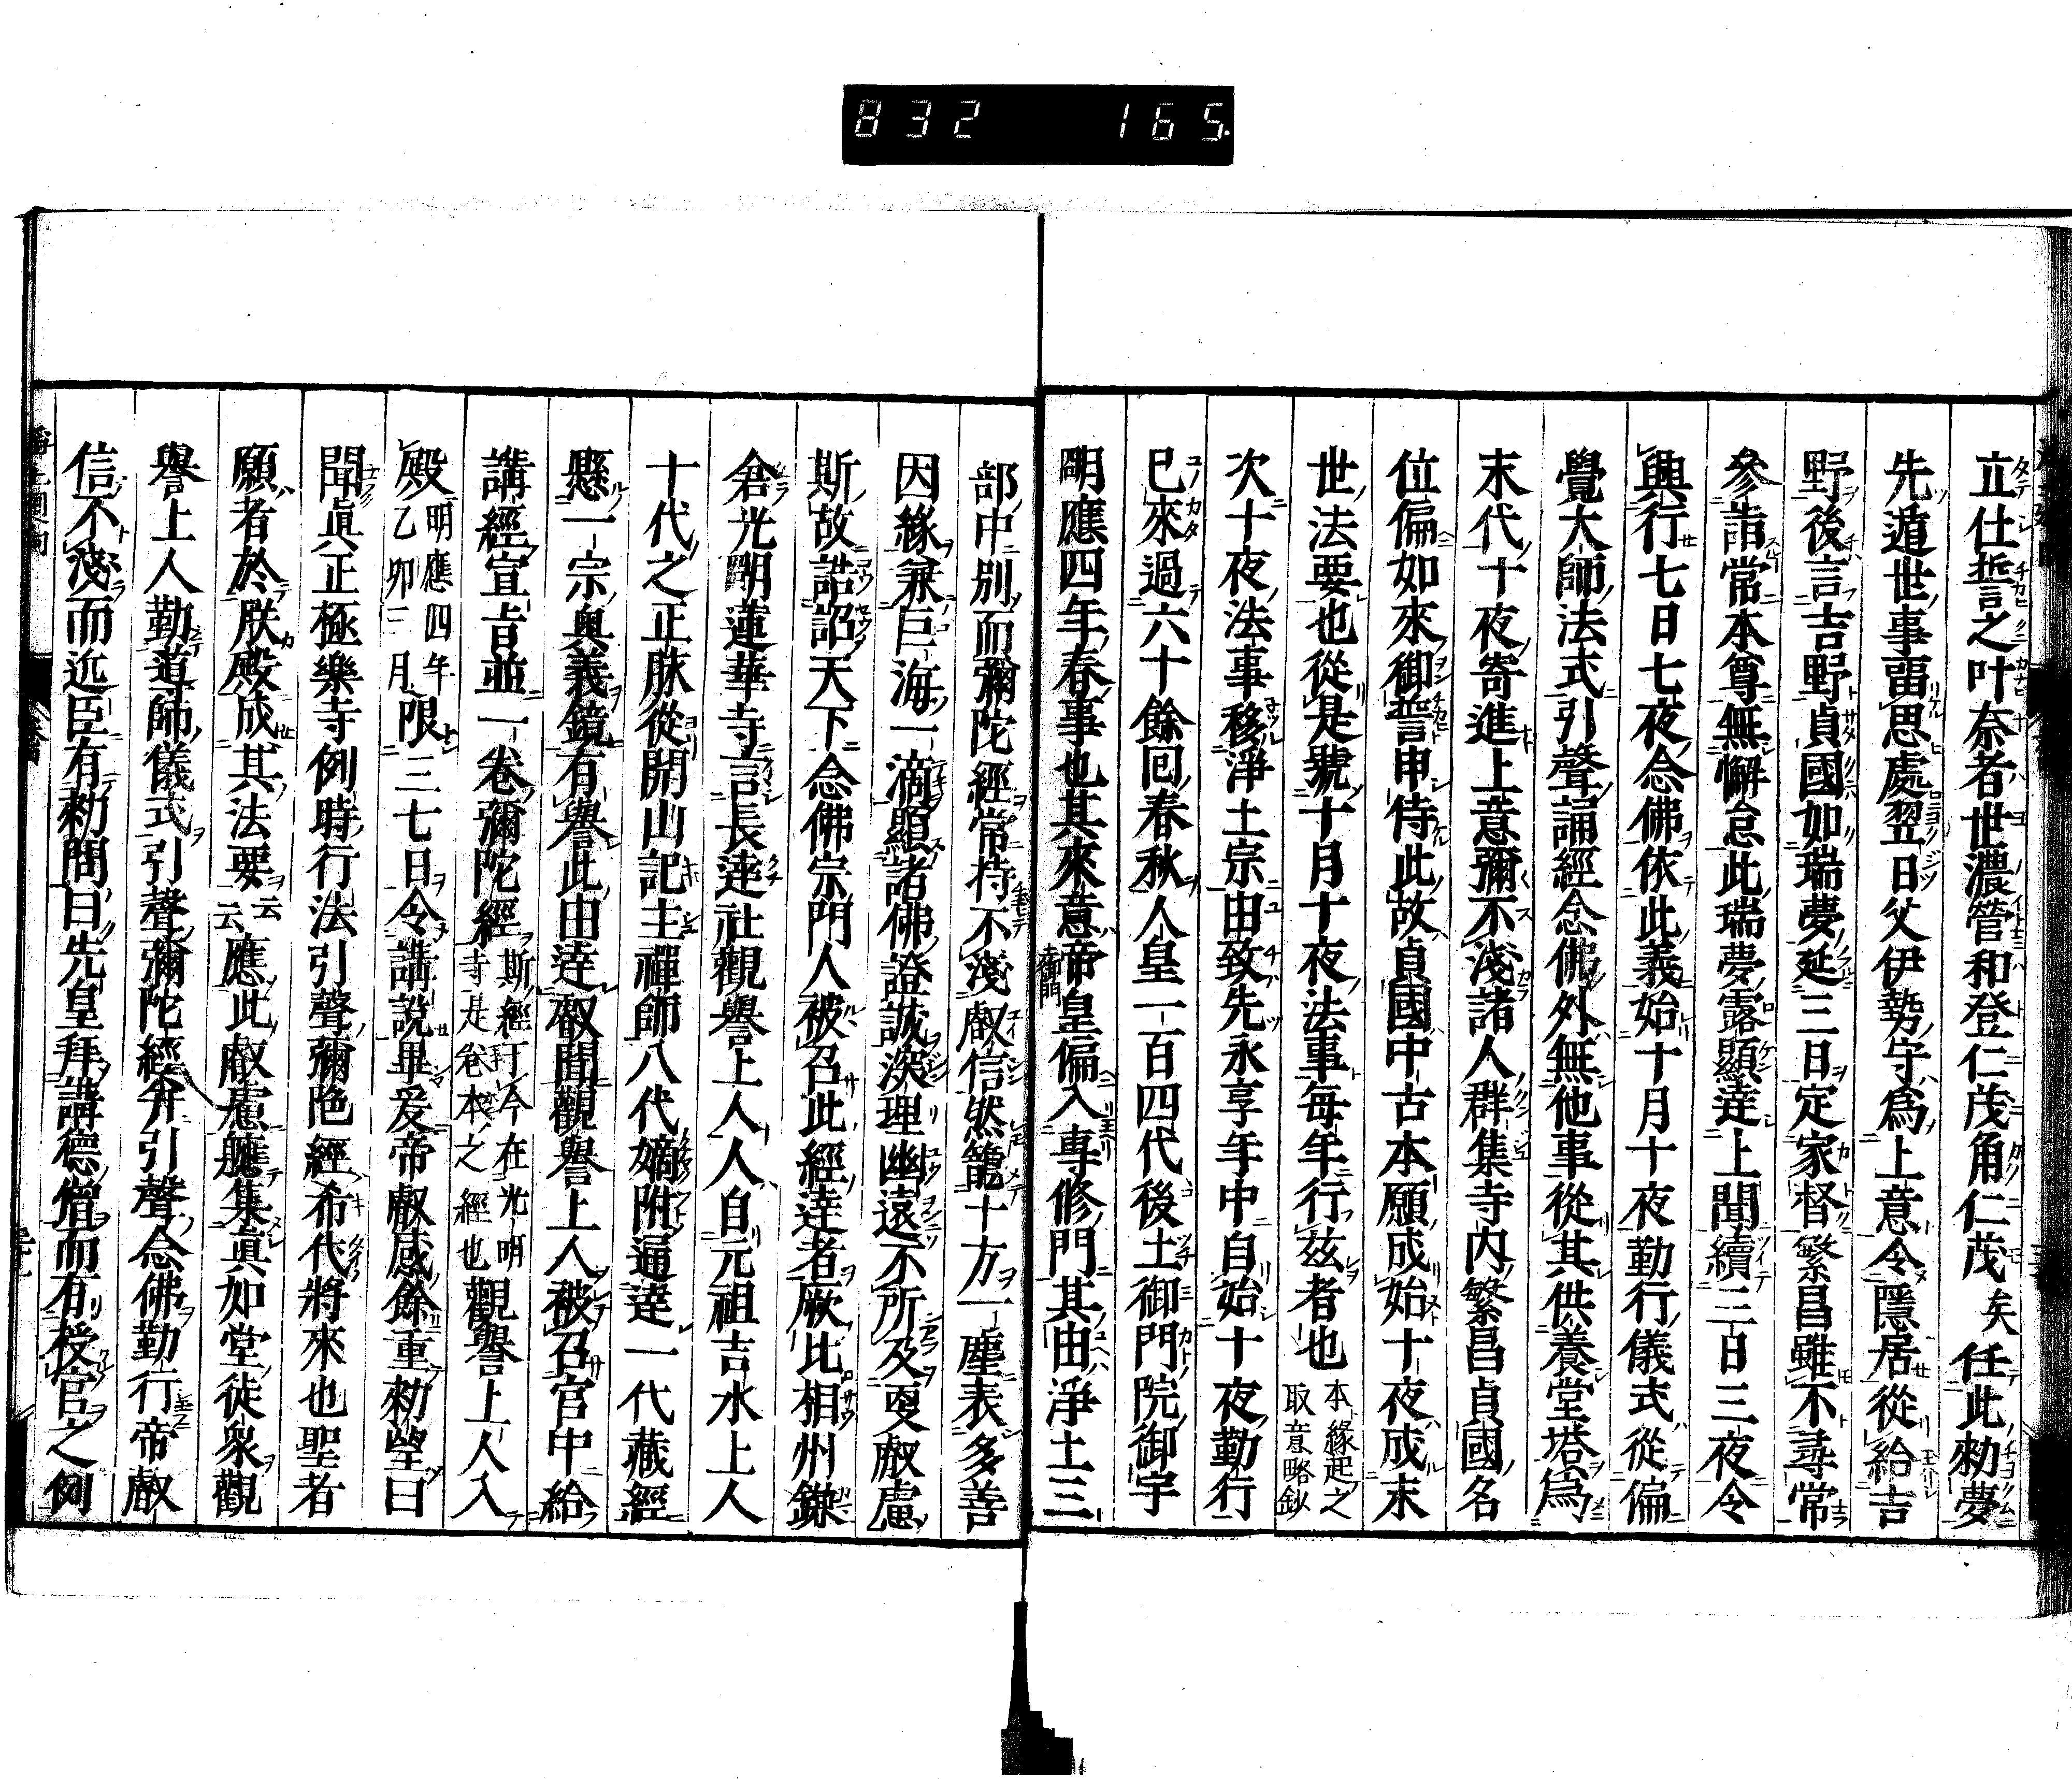 832 165
立仕誓之叶奈者世濃管和登仁茂角仁茂矣任此勅夢
先遁世事畱思處翌日父伊勢守爲上意令隱居從給吉
野後言吉野貞國如瑞夢延三日定家督繁昌雖不尋常
參詣常本尊無懈怠此瑞夢露顯達上聞續三日三夜令
興行七日七夜念佛依此義始十月十夜勤行儀式從偏
覺大師法式引聲誦經念佛外無他事從其供養堂塔爲
末代十夜寄進上意彌不淺諸人群集寺内繁昌貞國名
位偏如來御誓申侍此故貞國中古本願成始十夜成末
世法要也從是號十月十夜法事毎年行茲者也本緣起之取意略鈔
次十夜法事移淨土宗由致先永享年中自始十夜勤行
巳來過六十餘囘春秋人皇一百四代後土御門院御宇
明應四年春事也其來意帝皇偏入專修門其由淨土三
部中別而彌陀經常持不淺叡信然籠十方一塵表多善
因緣兼巨海一滴顯諸佛證誠深理幽遠不所及更叡慮
斯故誥詔天下念佛宗門人被召此經達者厥比相州鎌
倉光明蓮華寺言長達社觀譽上人人自元祖吉水上人
十代之正脉從開山記主禪師八代嫡附逼達一代藏經
懸一宗奧義鏡有譽此由達叡聞觀譽上人被召宮中給
講經宣旨並一卷彌陀經斯經于今在光明寺是卷本之經也觀譽上人入
殿明應四年乙卯三月限三七日令講說畢爰帝叡感餘重勅望曰
聞眞正極樂寺例時行法引聲彌陀經希代將來也聖者
願者於朕殿成其法要云云應此叡慮艤集眞如堂徒衆觀
譽上人勤道師儀式引聲彌陀經并引聲念佛勤行帝叡
信不淺而近臣有勅問曰先皇拜講德僧而有授官之例